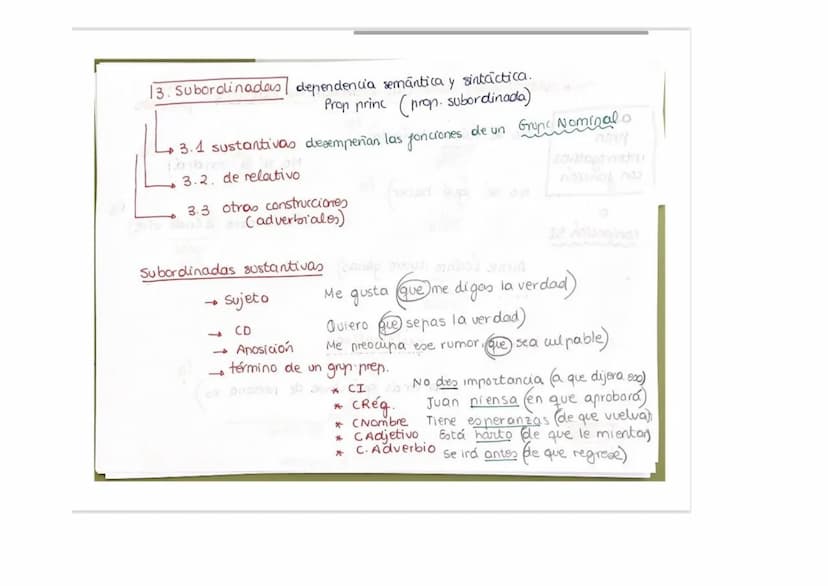 3. Subordinadas dependencia semántica y sintáctica.
Prop princ (prop. subordinada)
3.1 sustantivas desempeñan las funciones de un Grupo Nominal
3.2. de relativo
3.3 otras construcciones
(adverbiales)
Subordinadas sustantivas
→ Sujeto Me gusta (que me digas la verdad)
→ CD Quiero que sepas la verdad)
→ Aposición Me preocupa ese rumor, que sea culpable)
→ término de un grup. prep.
* CI No des importancia (a que dijera eso)
* CRég. Juan piensa (en que aprobará)
* CNombre Tiene esperanzas (de que vuelva)
* CAdjetivo Está harto (de que le mientan)
* C.Adverbio Se irá antes (de que regrese)